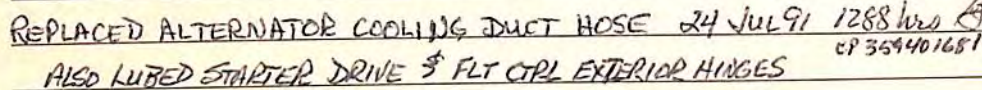 REPLACED ALTERNATOR COOLING DUCT HOSE 24 JUL 91 1288 hrs
CP 359401681
ALSO LUBED STARTER DRIVE & FLT CTRL EXTERIOR HINGES